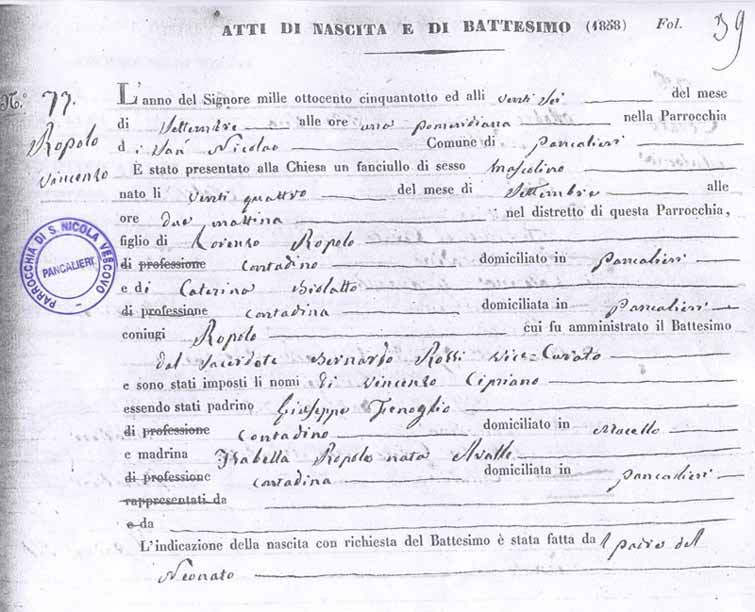 ATTI DI NASCITA E DI BATTESIMO (1858) Fol. 39
N.° 77.
Ropolo
Vincenzo
L'anno del Signore mille ottocento cinquantotto ed alli venti sei del mese
di Settembre alle ore una pomeridiana nella Parrocchia
di San Nicolao Comune di Pancalieri
È stato presentato alla Chiesa un fanciullo di sesso mascolino
nato li venti quattro del mese di Settembre alle
ore due mattina nel distretto di questa Parrocchia,
figlio di Lorenzo Ropolo
di professione Contadino domiciliato in Pancalieri
e di Caterina Biolatto
di professione Contadina domiciliata in Pancalieri
coniugi Ropolo cui fu amministrato il Battesimo
dal Sacerdote Bernardo Rossi Vice-Curato
e sono stati imposti li nomi di Vincenzo Cipriano
essendo stati padrino Giuseppe Fenoglio
di professione Contadino domiciliato in Macello
e madrina Isabella Ropolo nata Avalle
di professione Contadina domiciliata in Pancalieri
rappresentati da
e da
L'indicazione della nascita con richiesta del Battesimo è stata fatta dal padre del
Neonato
PARROCCHIA DI S. NICOLA VESCOVO
PANCALIERI